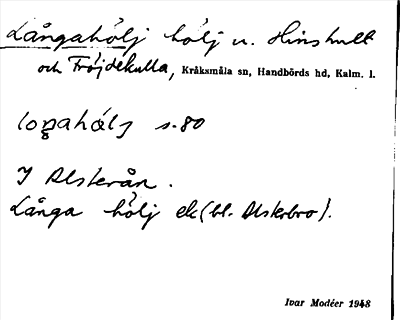 Långahölj hölj u. Hinshult
och Fröjdekulla, Kråksmåla sn, Handbörds hd, Kalm. l.
s. 80
I Alsterån.
Långa hölj ek (bl. Alsterbro).
Ivar Modéer 1948